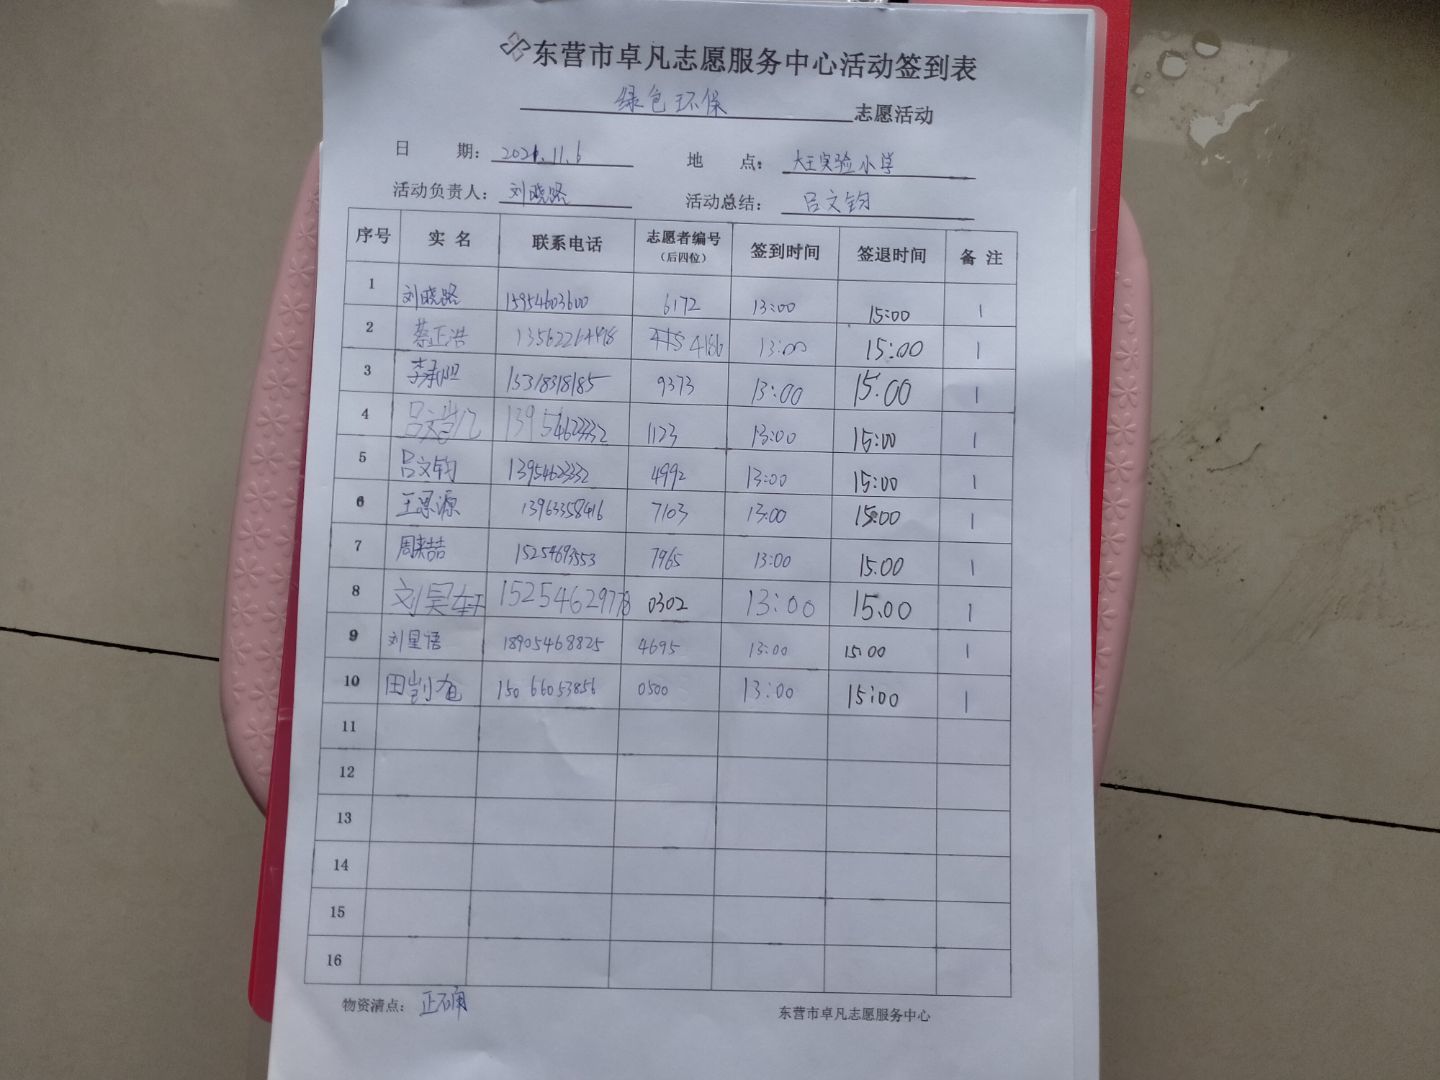 东营市卓凡志愿服务中心活动签到表
绿色环保 志愿活动
日 期: 2021.11.6 地 点: 大王实验小学
活动负责人: 刘晓路 活动总结: 吕文钧
序号 实名 联系电话 志愿者编号 (后四位) 签到时间 签退时间 备注
1 刘晓路 15954603600 6172 13:00 15:00 1
2 蔡正浩 4186 13:00 15:00 1
3 15318318185 9373 13:00 15.00 1
4 吕文凯 13954623332 1123 13:00 15:00 1
5 吕文钧 13954623332 4992 13:00 15:00 1
6 王思源 13963358416 7103 13:00 15:00 1
7 15254693553 7965 13:00 15.00 1
8 刘昊轩 15254629778 0302 13:00 15:00 1
9 刘星语 18905468825 4695 13:00 15:00 1
10 15066053856 0500 13:00 15:00 1
11
12
13
14
15
16
物资清点: 正确 东营市卓凡志愿服务中心